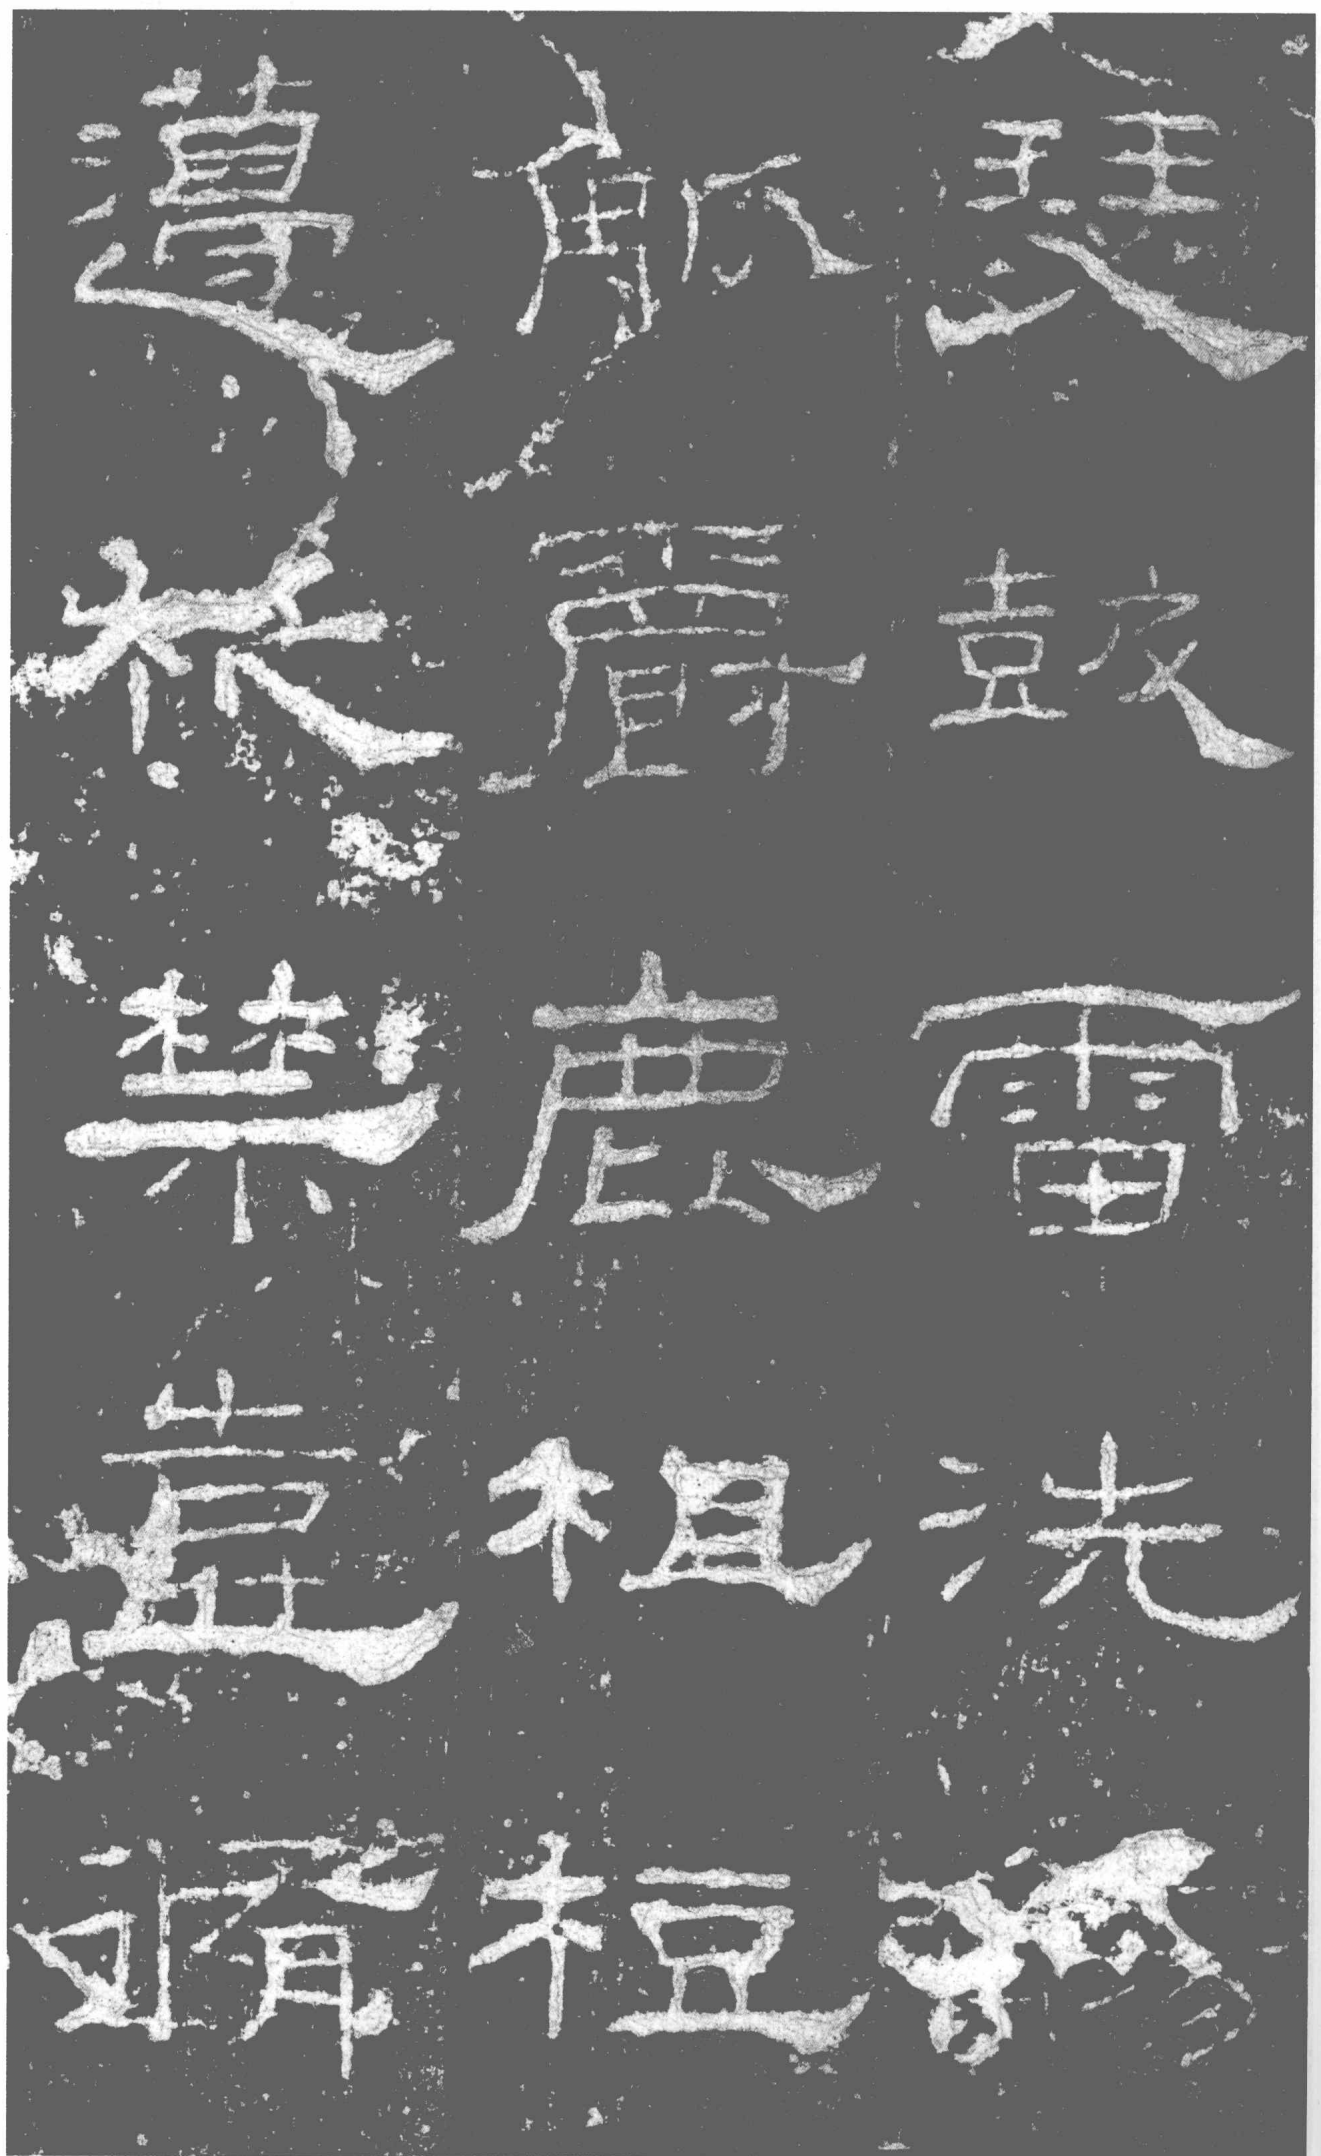 瑟鼓雷洗觴
觚爵鹿柤梪
籩柉禁壺脩